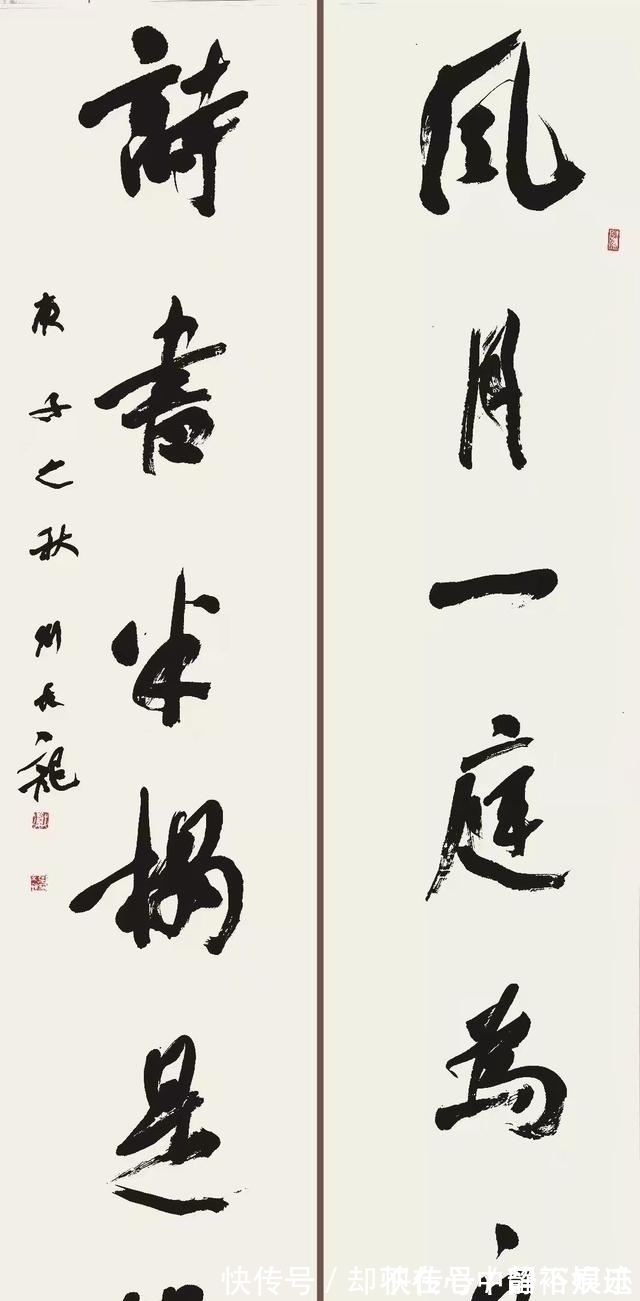 風月一庭為
詩書半榻是
庚子之秋
快传号 /